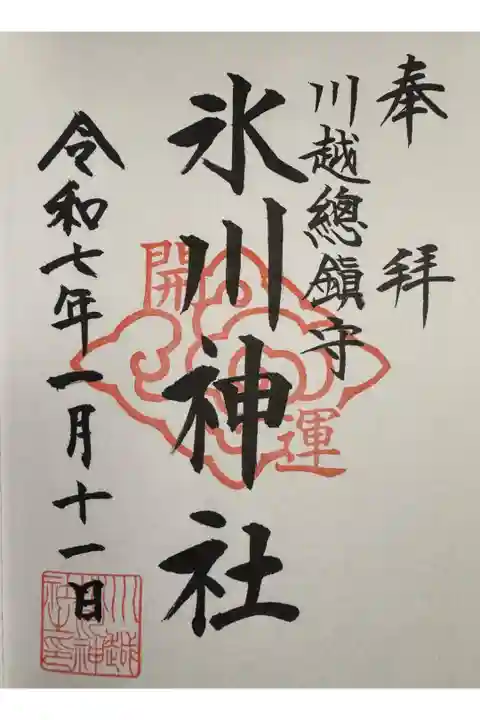 奉拝
川越總鎮守
氷川神社
開運
令和七年一月十一日
川越氷川神社之印